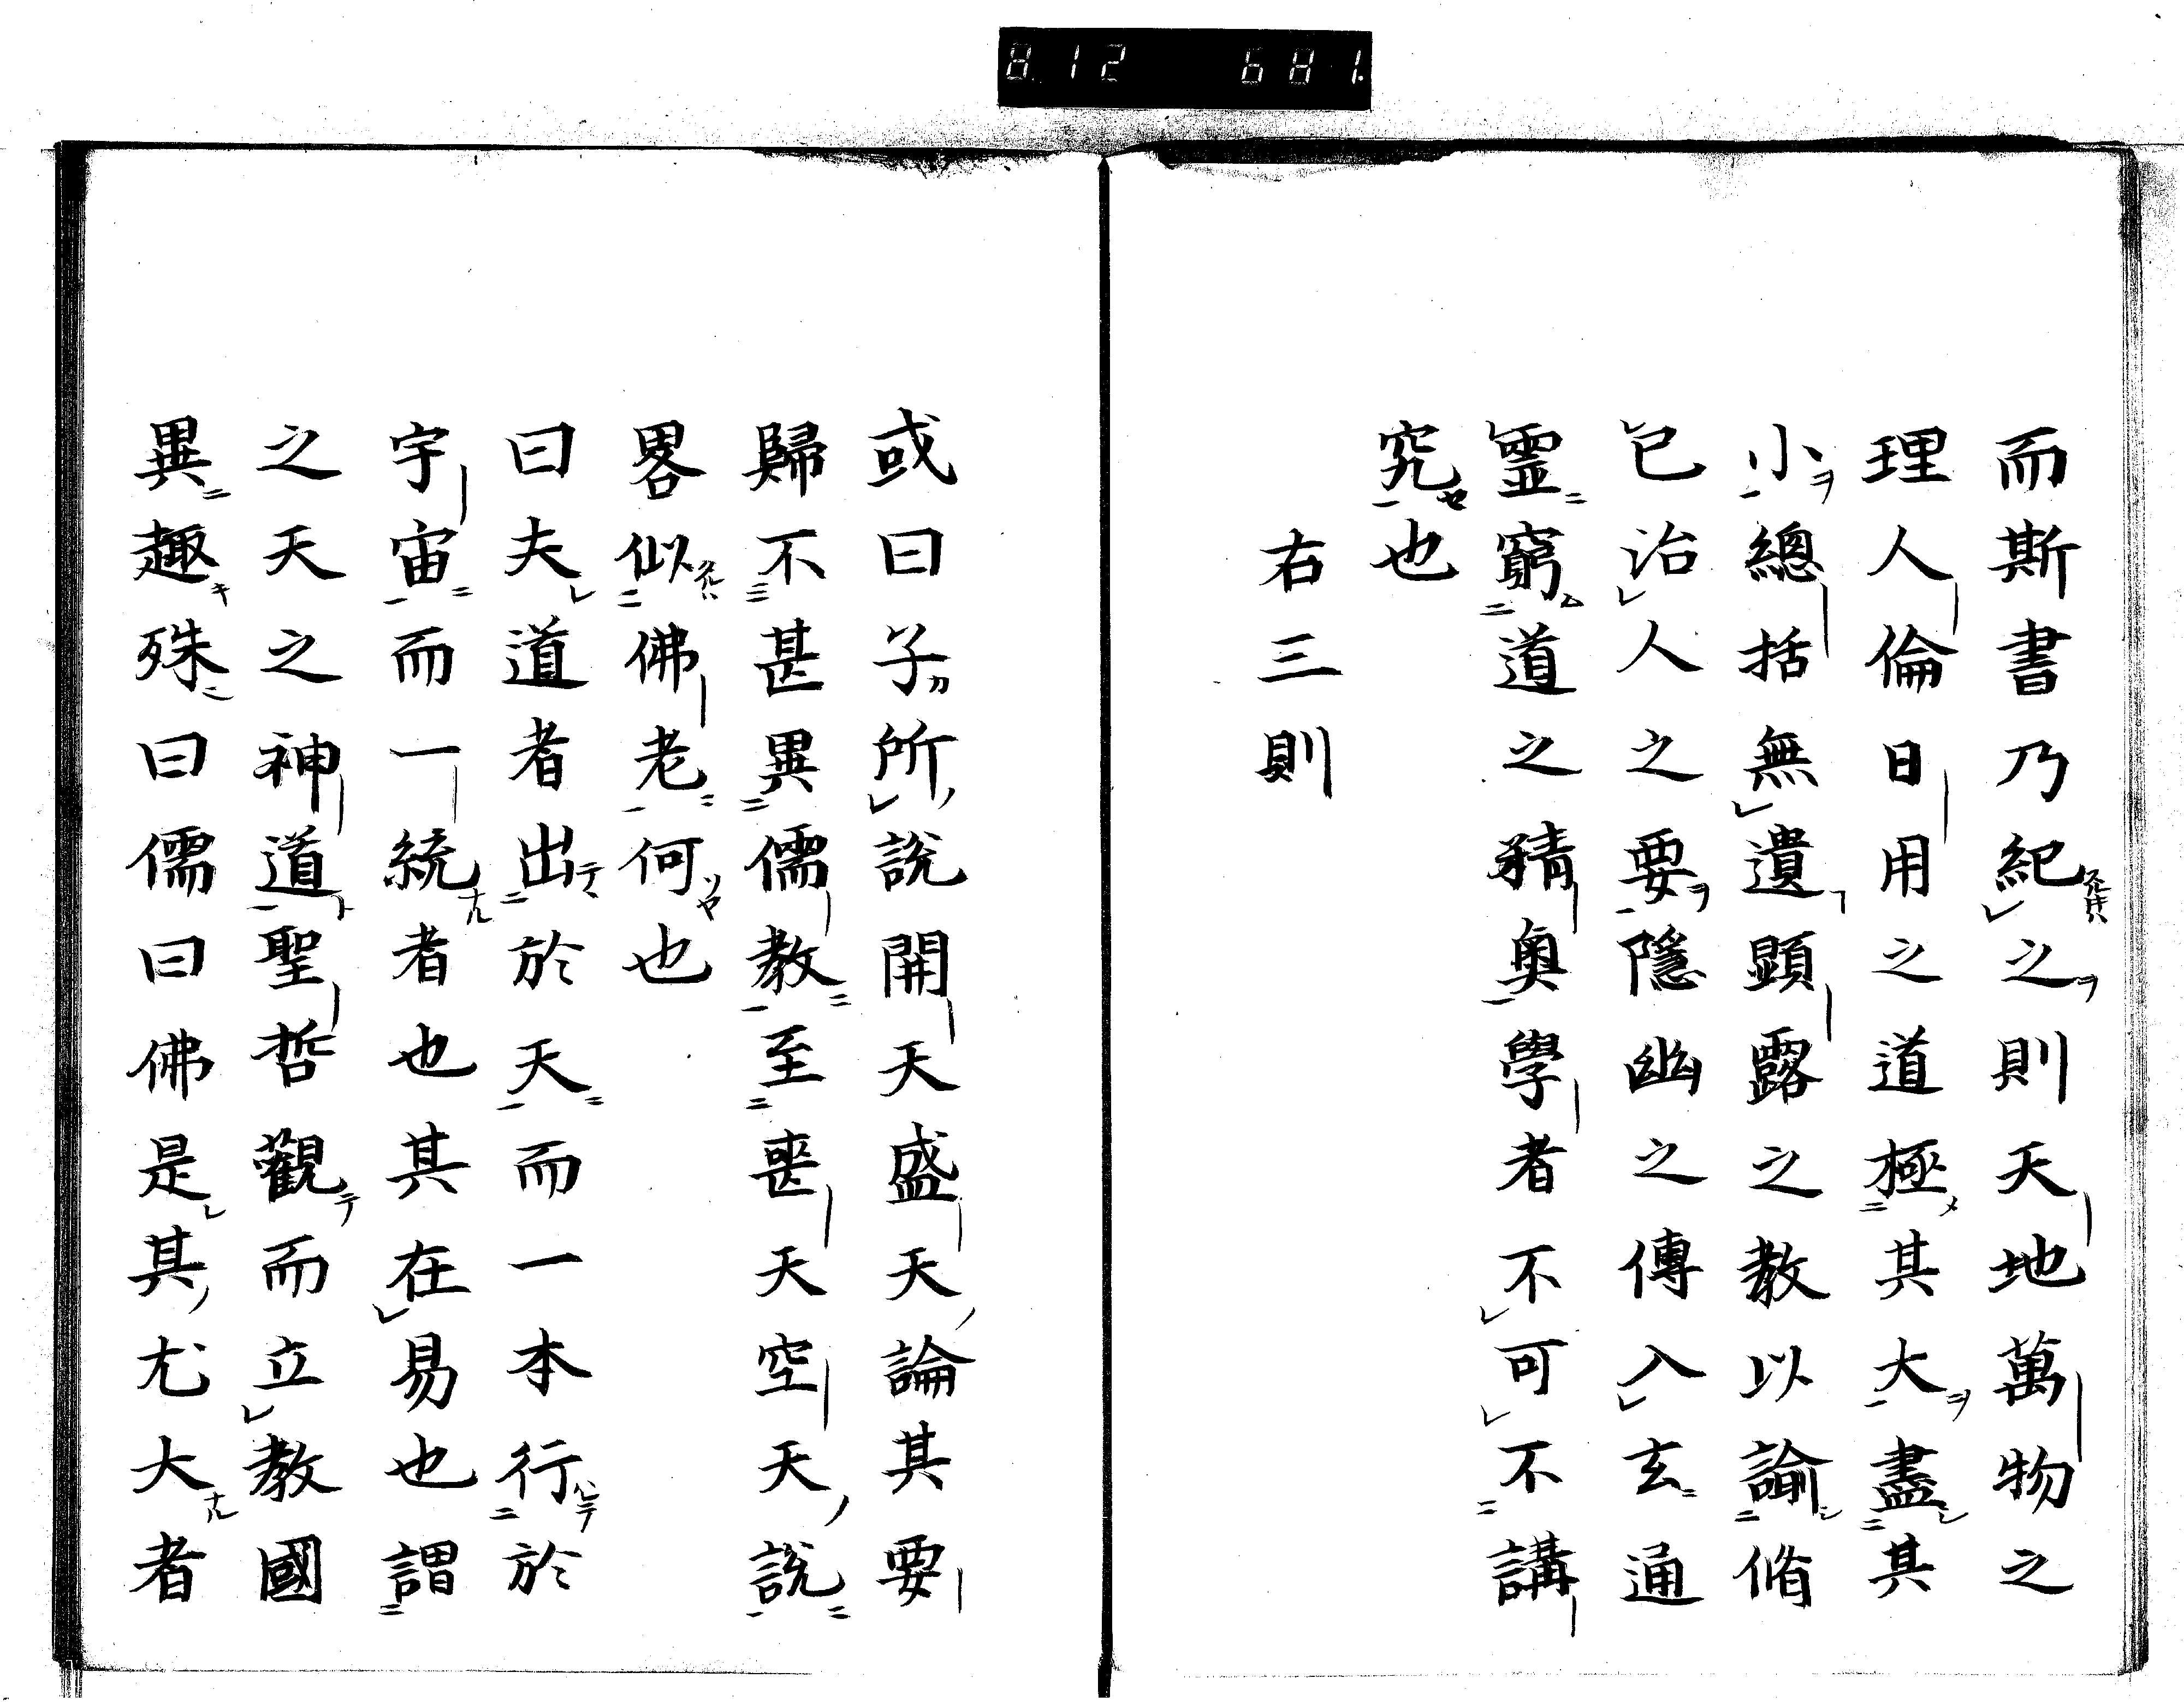 8.12 681.
而斯書乃紀之則天地萬物之
理人倫日用之道極其大盡其
小總括無遺顕露之教以諭脩
已治人之要隱幽之傳入玄通
霊窮道之精奥學者不可不講
究也
右三則
或曰子所說開天盛天論其要
歸不甚異儒教至喪天空天說
畧似佛老何也
曰夫道者出於天而一本行於
宇宙而一統者也其在易也謂
之天之神道聖哲觀而立教國
異趣殊曰儒曰佛是其尤大者